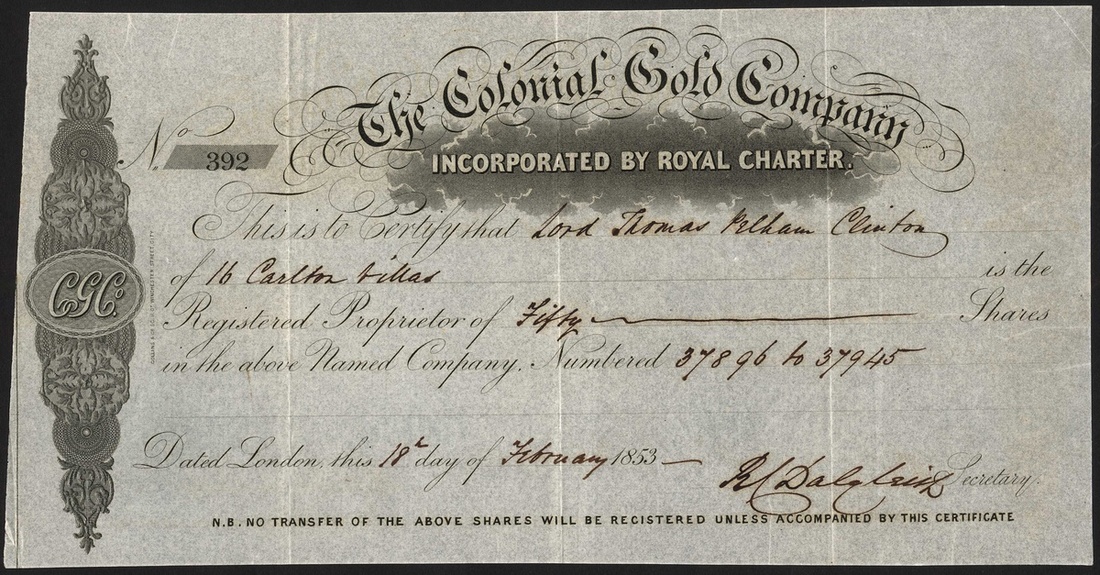 The Colonial Gold Company
INCORPORATED BY ROYAL CHARTER.
No. 392
This is to Certify that Lord Thomas Pelham Clinton
of 16 Carlton Villas is the
Registered Proprietor of Fifty Shares
in the above Named Company, Numbered 37896 to 37945
CGCo.
Dated London, this 18th day of February 1853
Secretary.
N.B. NO TRANSFER OF THE ABOVE SHARES WILL BE REGISTERED UNLESS ACCOMPANIED BY THIS CERTIFICATE